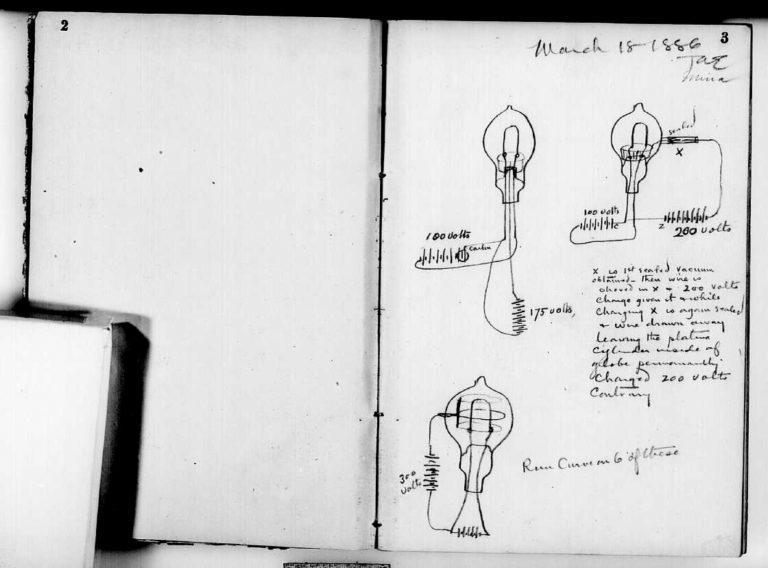 2
3
March 18 1886
TAE
Mina
sealed
X
100 volts
Carbon
175 volts,
100 volts
C
Z
200 volts
X is 1st sealed vacuum
obtained - then wire is
shoved in X & 200 volts
Charge given it & while
Charging X is again sealed
& wire drawn away
leaving the platina
Cylinder inside of
globe permanantly
Charged 200 volts
Contrary
300
volts
Run Curve on 6 of these